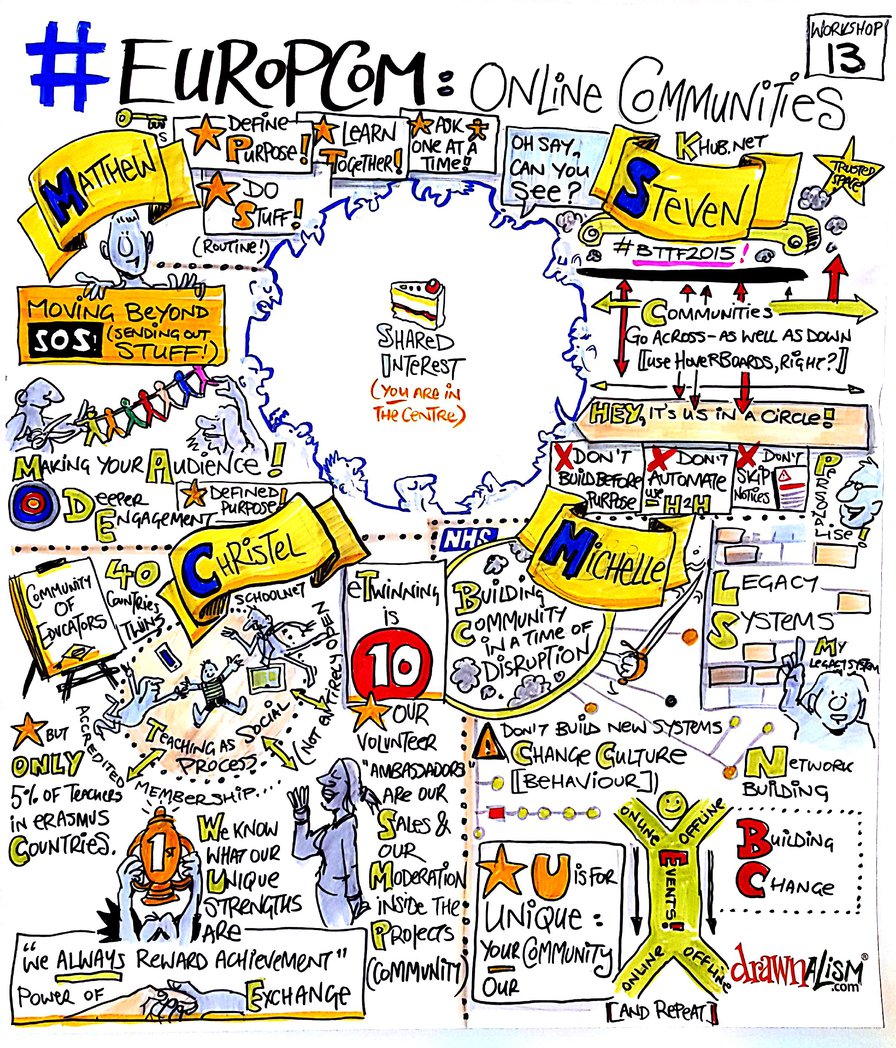 #EUROPCOM: ONLINE COMMUNITIES
WORKSHOP
13
MATTHEW
DEFINE
PURPOSE!
LEARN
TOGETHER!
ASK
ONE AT A
TIME!!
DO
STUFF!
(ROUTINE!)
OH SAY,
CAN YOU
SEE?
KHUB.NET
STEVEN
TRUSTED
SPACE
#BTTF2015!
MOVING BEYOND
SOS! (SENDING OUT
STUFF!)
SHARED
INTEREST
(YOU ARE IN
THE CENTRE)
COMMUNITIES
GO ACROSS - AS WELL AS DOWN
[USE HOVERBOARDS, RIGHT?]
HEY, IT'S US IN A CIRCLE!
MAKING YOUR AUDIENCE!
DEEPER
ENGAGEMENT
DEFINED
PURPOSE!
X DON'T
BUILD BEFORE
PURPOSE
X DON'T
AUTOMATE
USE H2H
X DON'T
SKIP
NOTICES
PERSONALISE!
CHRISTEL
COMMUNITY
OF
EDUCATORS
40
COUNTRIES
TWINS
SCHOOLNET
TEACHING AS SOCIAL
PROCESS
(NOT ENTIRELY OPEN)
ACCREDITED
MEMBERSHIP...
BUT
ONLY
5% OF TEACHERS
IN ERASMUS
COUNTRIES.
eTWINNING
IS
10
OUR
VOLUNTEER
"AMBASSADORS"
ARE OUR
SALES &
OUR
MODERATION
INSIDE THE
PROJECTS
(COMMUNITY)
1ST
WE KNOW
WHAT OUR
UNIQUE
STRENGTHS
ARE
"WE ALWAYS REWARD ACHIEVEMENT"
POWER OF EXCHANGE
NHS
MICHELLE
BUILDING
COMMUNITY
IN A TIME OF
DISRUPTION
LEGACY
SYSTEMS
MY
LEGACY SYSTEM
DON'T BUILD NEW SYSTEMS
CHANGE CULTURE
[BEHAVIOUR])
NETWORK
BUILDING
ONLINE OFFLINE
EVENTS!
ONLINE OFFLINE
[AND REPEAT]
BUILDING
CHANGE
U IS FOR
UNIQUE:
YOUR COMMUNITY
OUR
drawnALISM®
.com